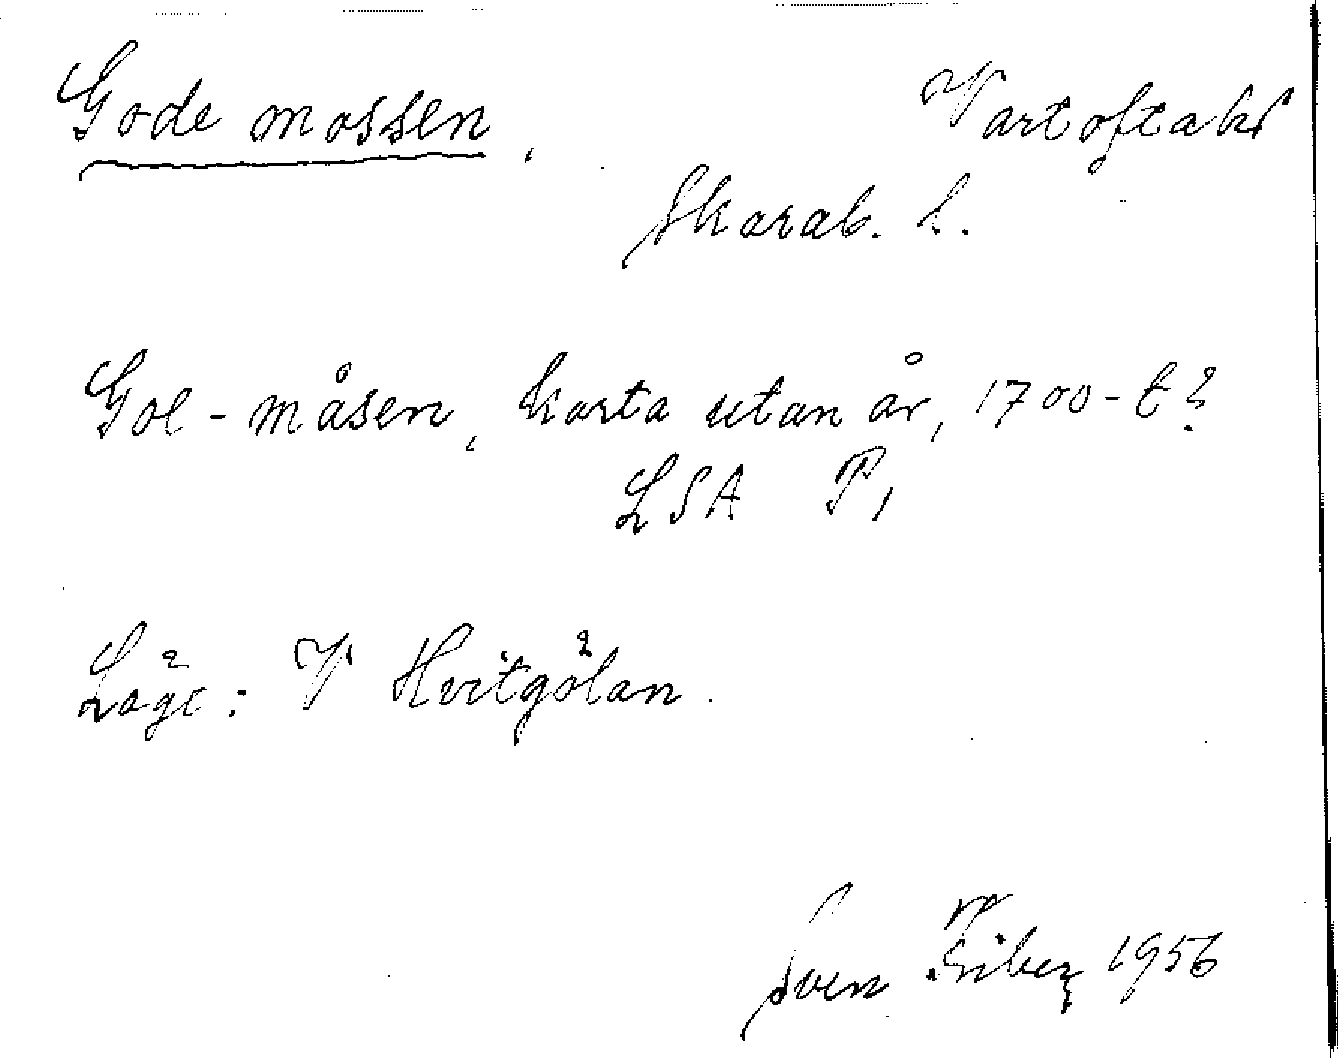 Gode mossen, Vartofta hd
Skarab. l.
Gol-måsen, karta utan år, 1700-t?
LSA P1
Läge: V Hvitgölan.
Sven Fiber 1956